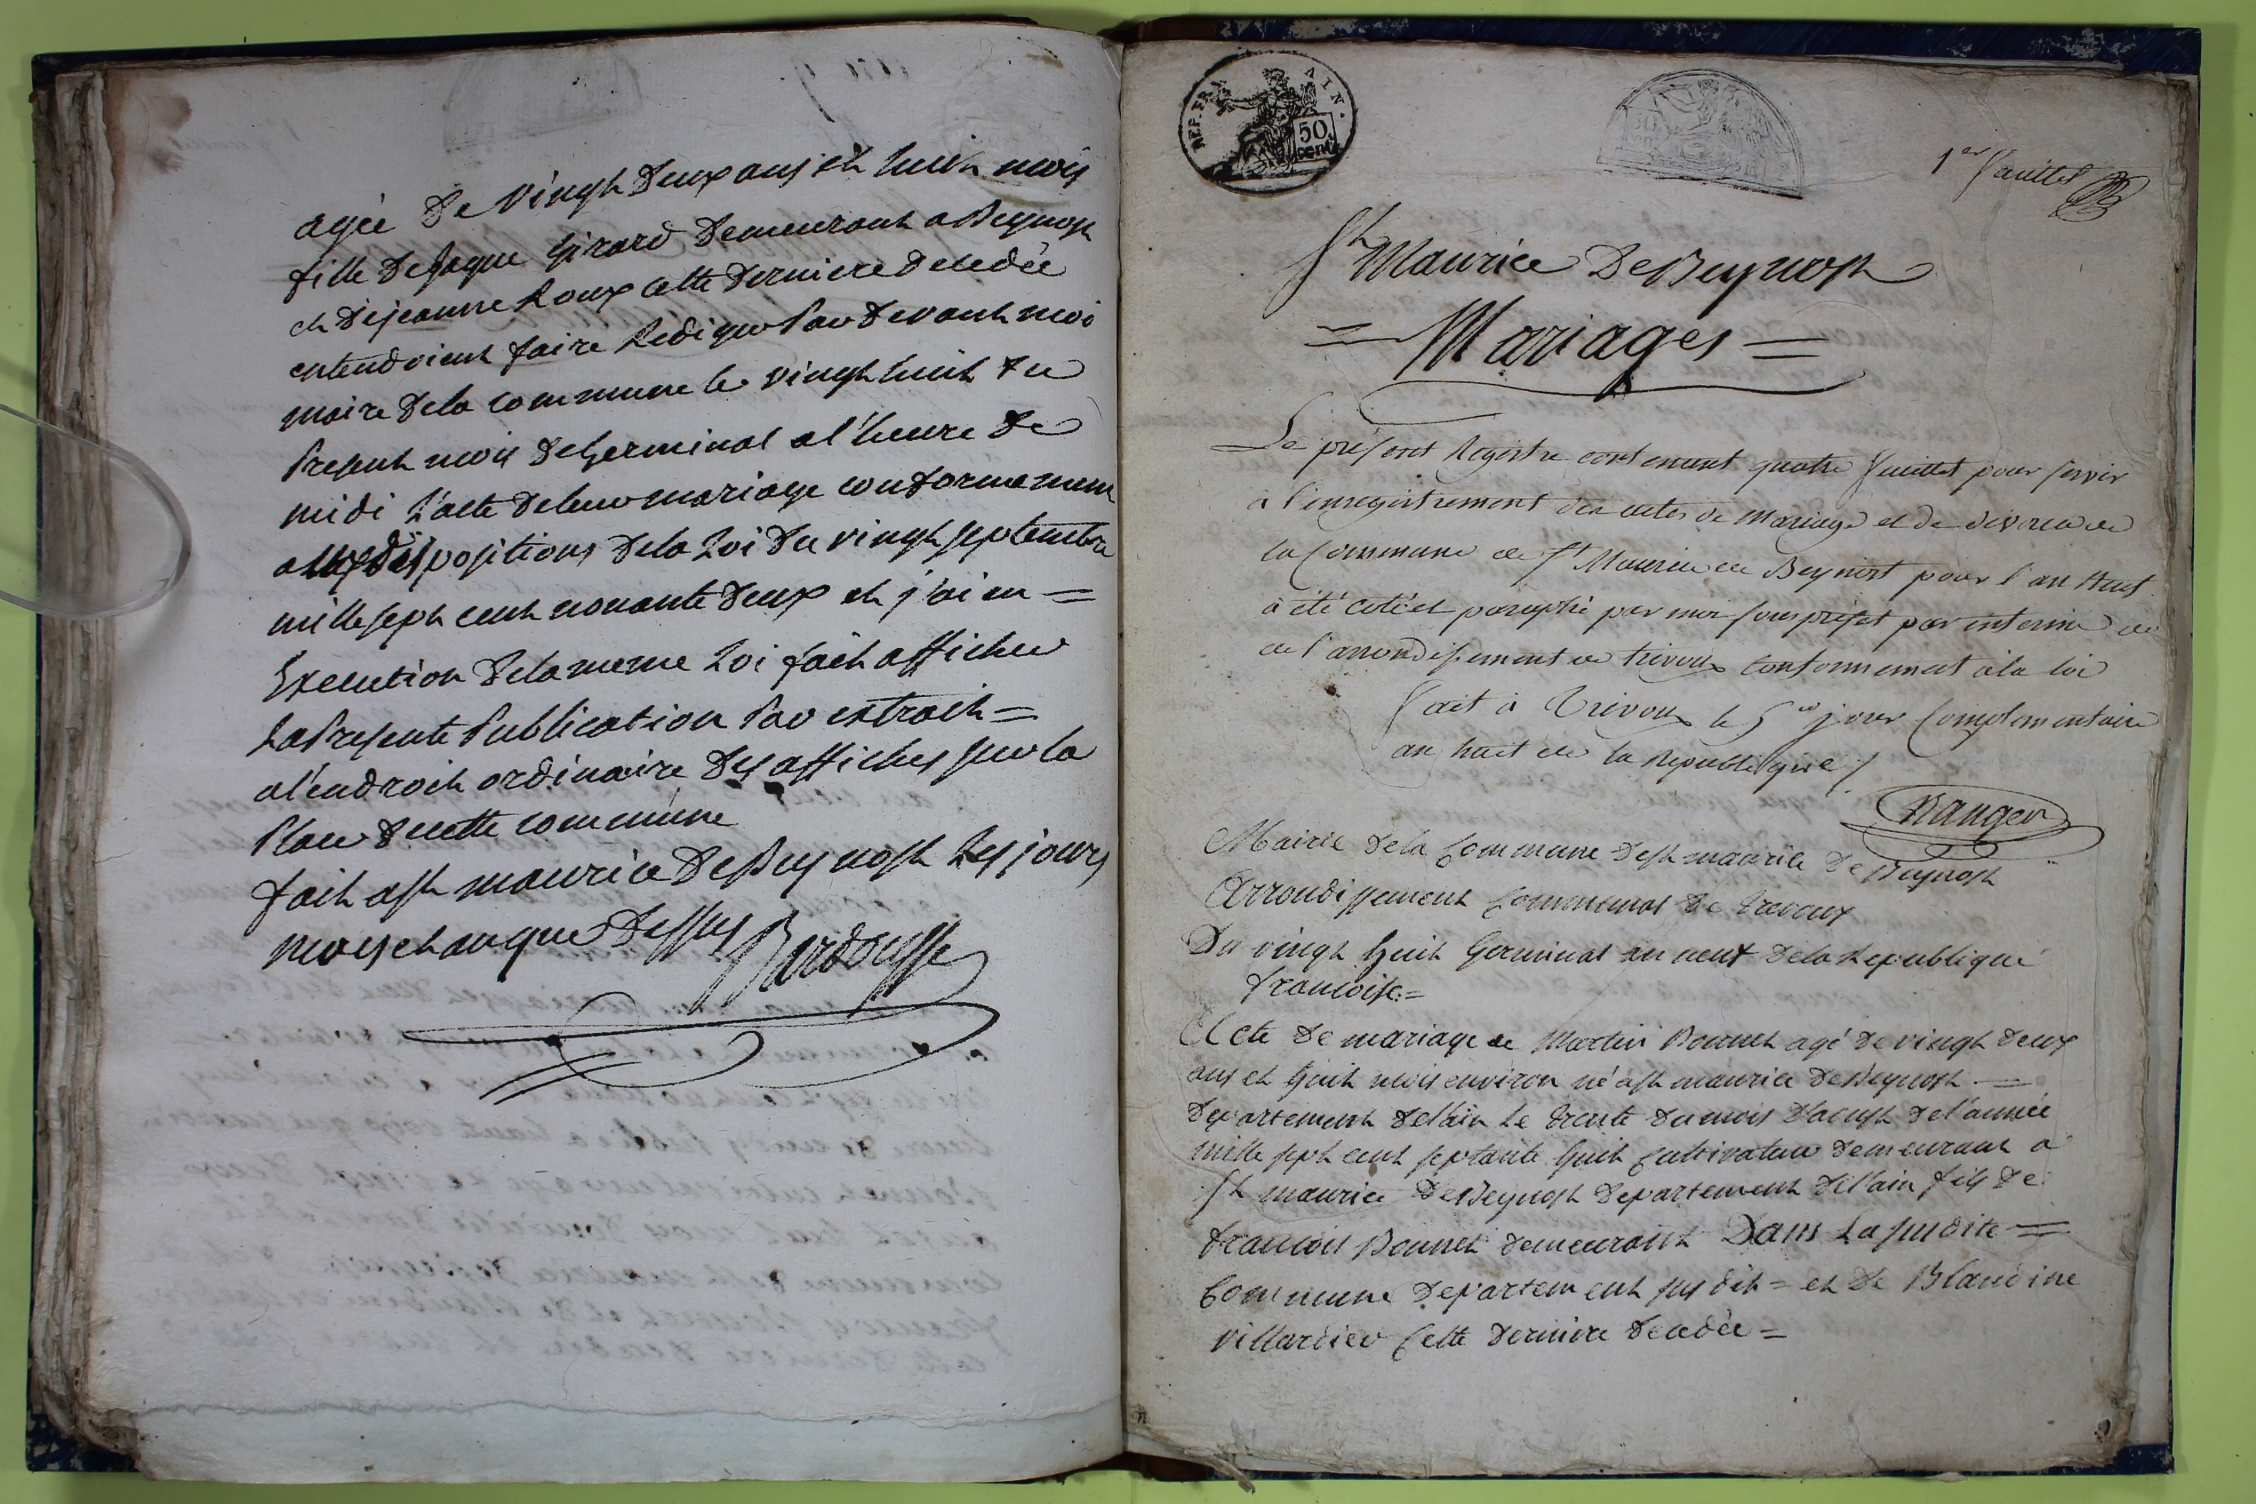 agée de vingh deux ans et huith mois
fille de Jaque Girard demeurant a Beynosh
et de jeanne Roux cette derniere decedée
entendoient faire Rediger Par devant moi
maire dela commune le vingh huit du
Present mois de Germinal a l'heure de
midi L'acte deleur mariage conformement
aux dispositions dela Loi du vingh septembre
mille sept cent nonante deux et j'ai en =
Execution dela meme Loi fait afficher
La Presente Publication Par extrait =
a l'endroit ordinaire des affiches sur la
Place de cette commune
fait a st maurice de Beynost Les jours
mois et an que dessus Bardousse
REP. FRA. AIN.
50 cent.
1er feuillet
St Maurice De Beynost
= Mariages =
Le présent Registre contenant quatre feuillet pour servir
à l'enregistrement des actes de Mariage et de divorce de
la Commune de St Maurice de Beynost pour l'an Neuf
a été coté et paraphé par moi sous préfet par interim de
de l'arrondissement de trevoux conformement à la loi
fait à Trevoux le 5e jour Complementaire
an huit de la République /
Mairie dela Commune de st maurice de Beynost
Arrondissement Communal de Trevoux
Du vingh huit Germinal an neuf dela Republique
francoise =
Acte de mariage de Martin Bonnet agé de vingh deux
ans et huit mois environ né a st maurice de Beynost =
Departement delain Le trente du mois d'aoust de l'année
mille sept cent septante huit Cultivateur demeurant a
st maurice de Beynost departement de l'ain fils de
francois Bonnet demeurant Dans La susdite =
Commune departement sus dit = et de Blandine
villardier Cette derniere decedée =